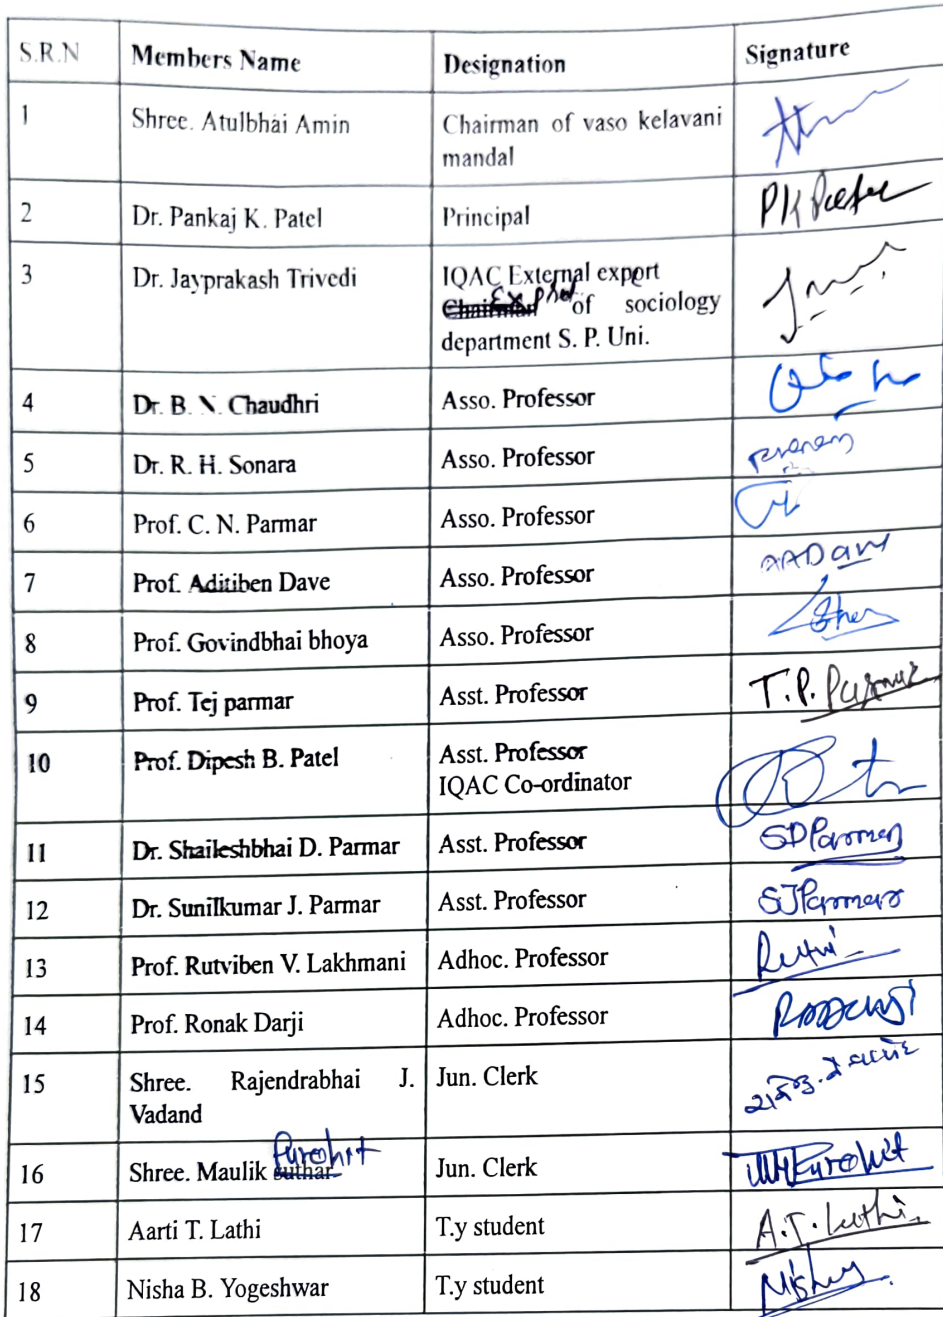 S.R.N Members Name Designation Signature
1 Shree. Atulbhai Amin Chairman of vaso kelavani
mandal
2 Dr. Pankaj K. Patel Principal PK Patel
3 Dr. Jayprakash Trivedi IQAC External export
Chairman of sociology
department S. P. Uni.
4 Dr. B. N. Chaudhri Asso. Professor
5 Dr. R. H. Sonara Asso. Professor
6 Prof. C. N. Parmar Asso. Professor
7 Prof. Aditiben Dave Asso. Professor AADave
8 Prof. Govindbhai bhoya Asso. Professor
9 Prof. Tej parmar Asst. Professor T.P. Parmar
10 Prof. Dipesh B. Patel Asst. Professor
IQAC Co-ordinator
11 Dr. Shaileshbhai D. Parmar Asst. Professor SDParmar
12 Dr. Sunilkumar J. Parmar Asst. Professor SJParmar
13 Prof. Rutviben V. Lakhmani Adhoc. Professor Rutvi
14 Prof. Ronak Darji Adhoc. Professor
15 Shree. Rajendrabhai J. Jun. Clerk
Vadand
Purohit
16 Shree. Maulik suthar Jun. Clerk MMPurohit
17 Aarti T. Lathi T.y student A.T. Lathi
18 Nisha B. Yogeshwar T.y student Nisha